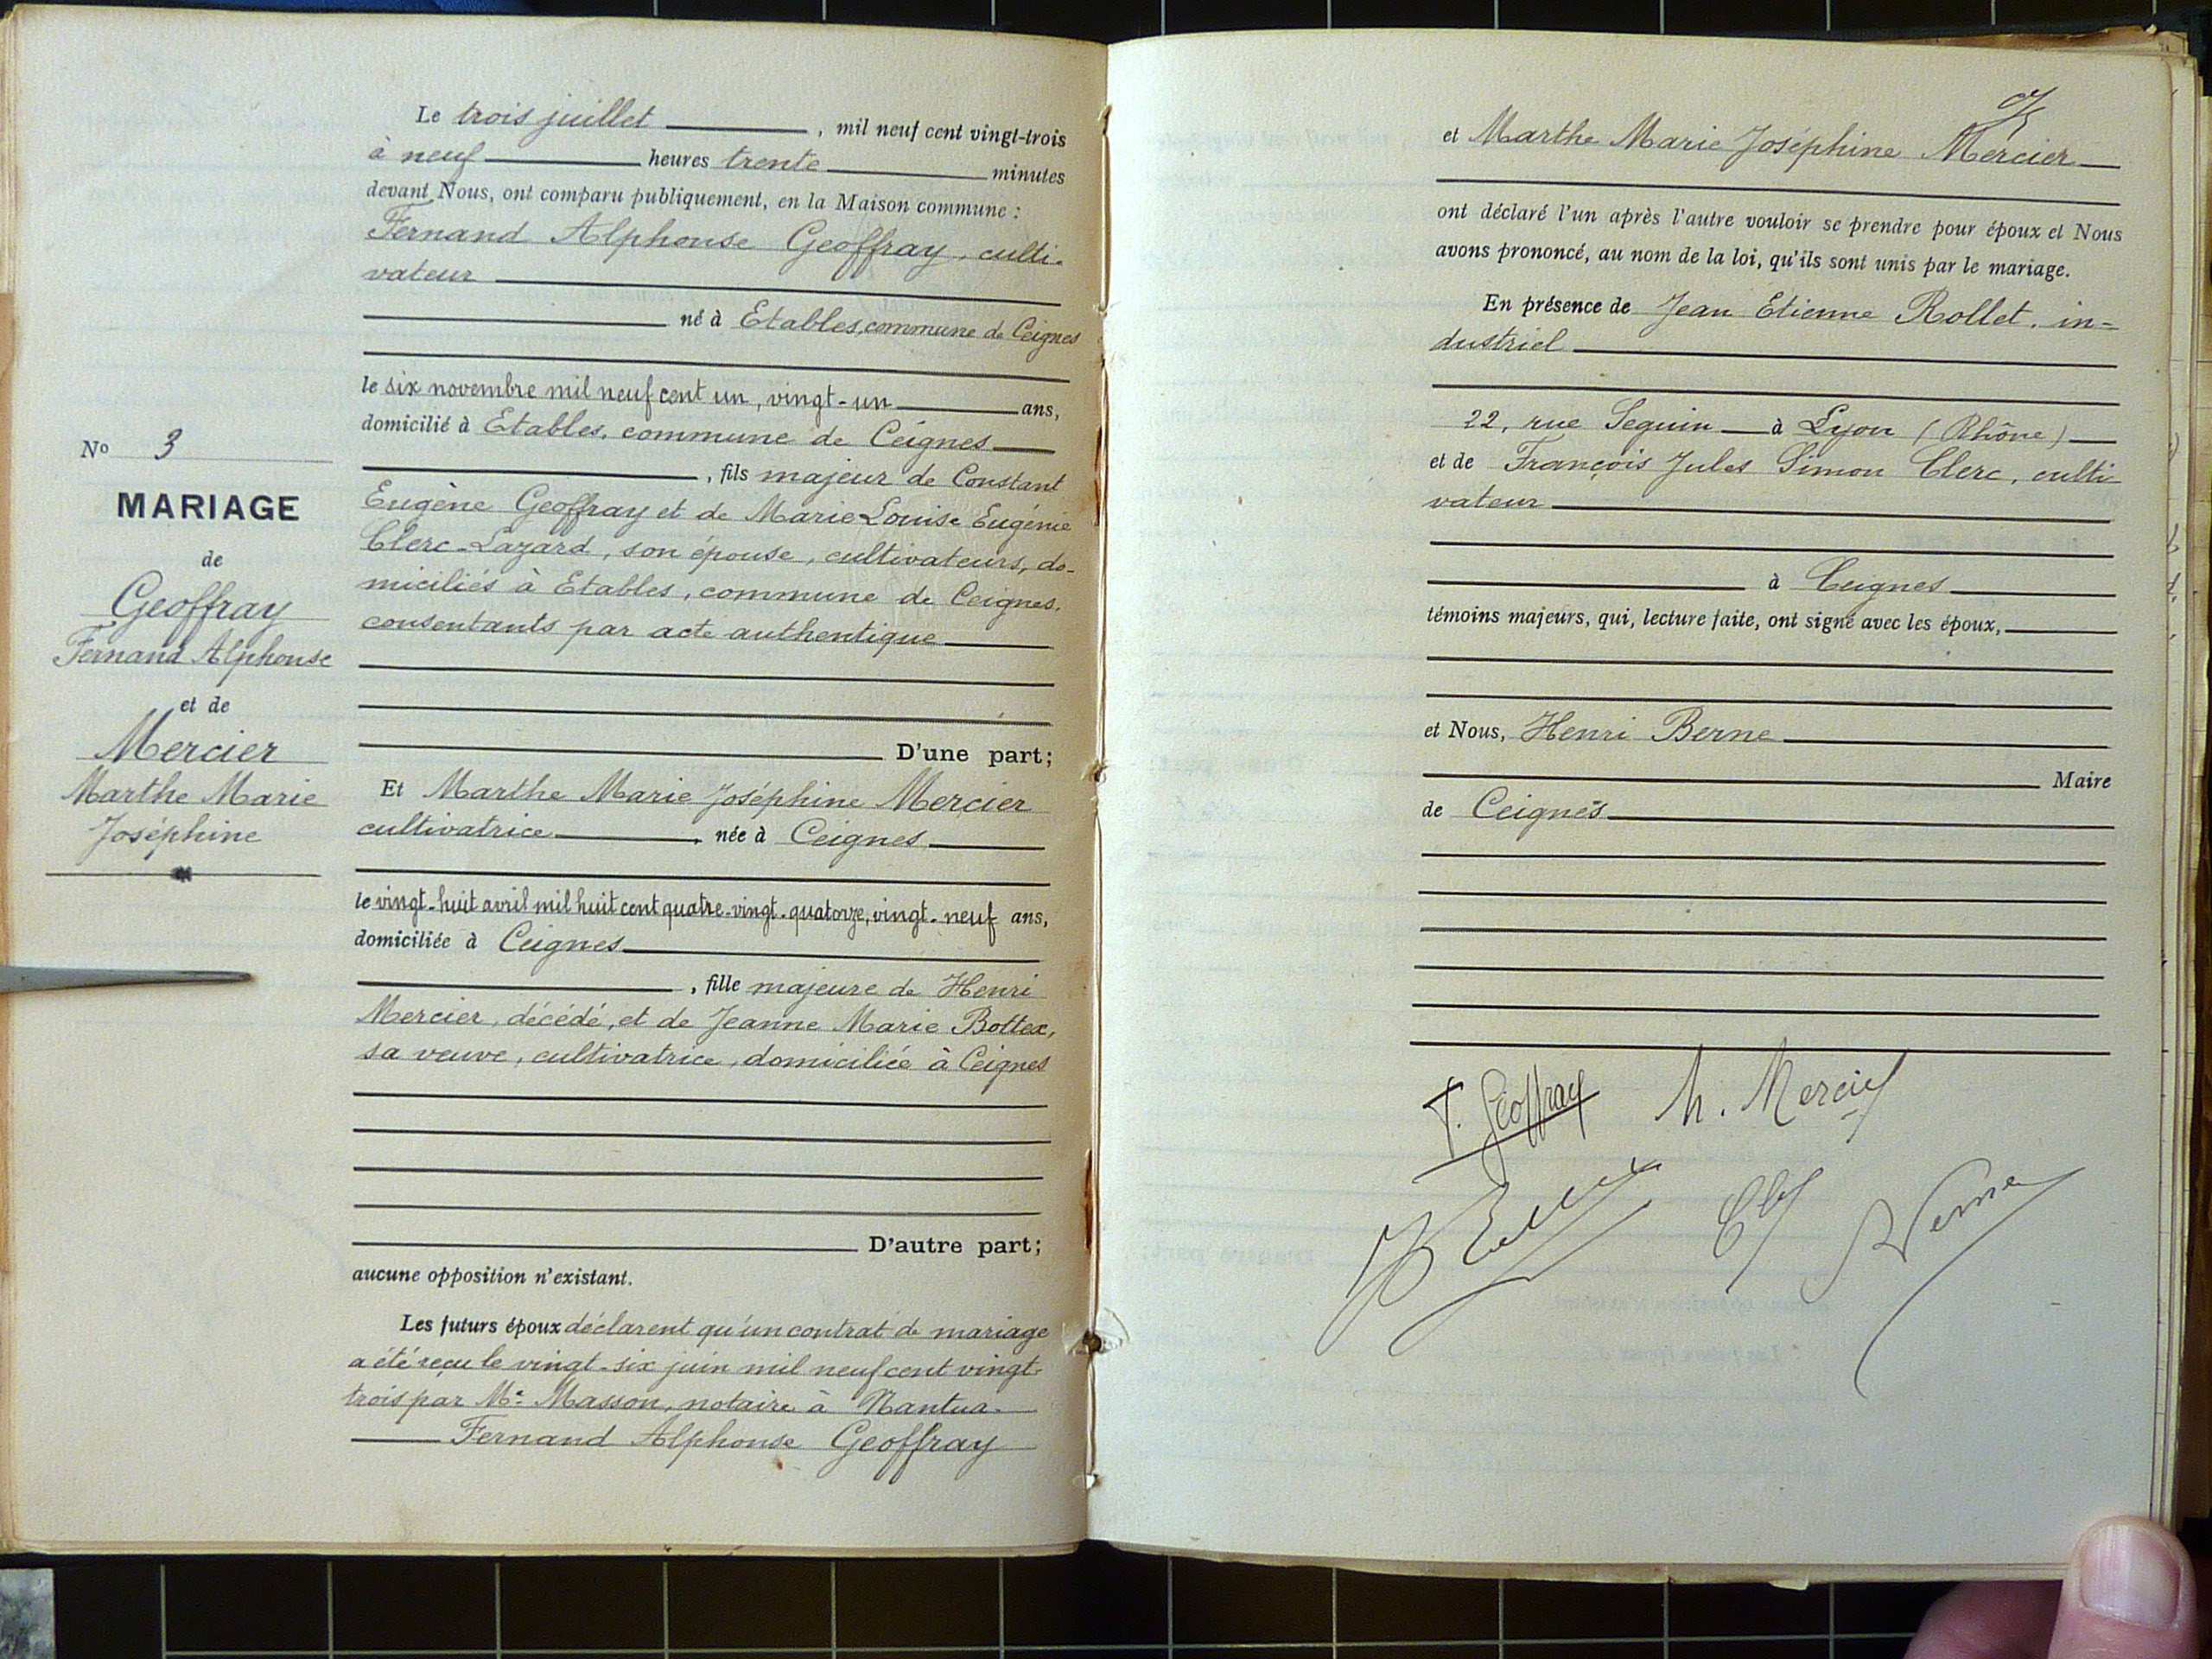 No 3
MARIAGE
de
Geoffray
Fernand Alphonse
et de
Mercier
Marthe Marie
Joséphine
Le trois juillet , mil neuf cent vingt-trois
à neuf heures trente minutes
devant Nous, ont comparu publiquement, en la Maison commune :
Fernand Alphonse Geoffray, culti-
vateur
né à Etables, commune de Ceignes
le six novembre mil neuf cent un, vingt-un ans,
domicilié à Etables, commune de Ceignes
, fils majeur de Constant
Eugène Geoffray et de Marie Louise Eugénie
Clerc-Lazard, son épouse, cultivateurs, do-
miciliés à Etables, commune de Ceignes,
consentants par acte authentique
D'une part;
Et Marthe Marie Joséphine Mercier
cultivatrice , née à Ceignes
le vingt-huit avril mil huit cent quatre-vingt-quatorze, vingt-neuf ans,
domiciliée à Ceignes
, fille majeure de Henri
Mercier, décédé, et de Jeanne Marie Bottex,
sa veuve, cultivatrice, domiciliée à Ceignes
D'autre part;
aucune opposition n'existant.
Les futurs époux déclarent qu'un contrat de mariage
a été reçu le vingt-six juin mil neuf cent vingt-
trois par Me Masson, notaire à Nantua.
Fernand Alphonse Geoffray
et Marthe Marie Joséphine Mercier
ont déclaré l'un après l'autre vouloir se prendre pour époux et Nous
avons prononcé, au nom de la loi, qu'ils sont unis par le mariage.
En présence de Jean Etienne Rollet, in-
dustriel
22, rue Seguin à Lyon (Rhône)
et de François Jules Simon Clerc, culti
vateur
à Ceignes
témoins majeurs, qui, lecture faite, ont signé avec les époux,
et Nous, Henri Berne
Maire
de Ceignes
F. Geoffray M. Mercier
Berne